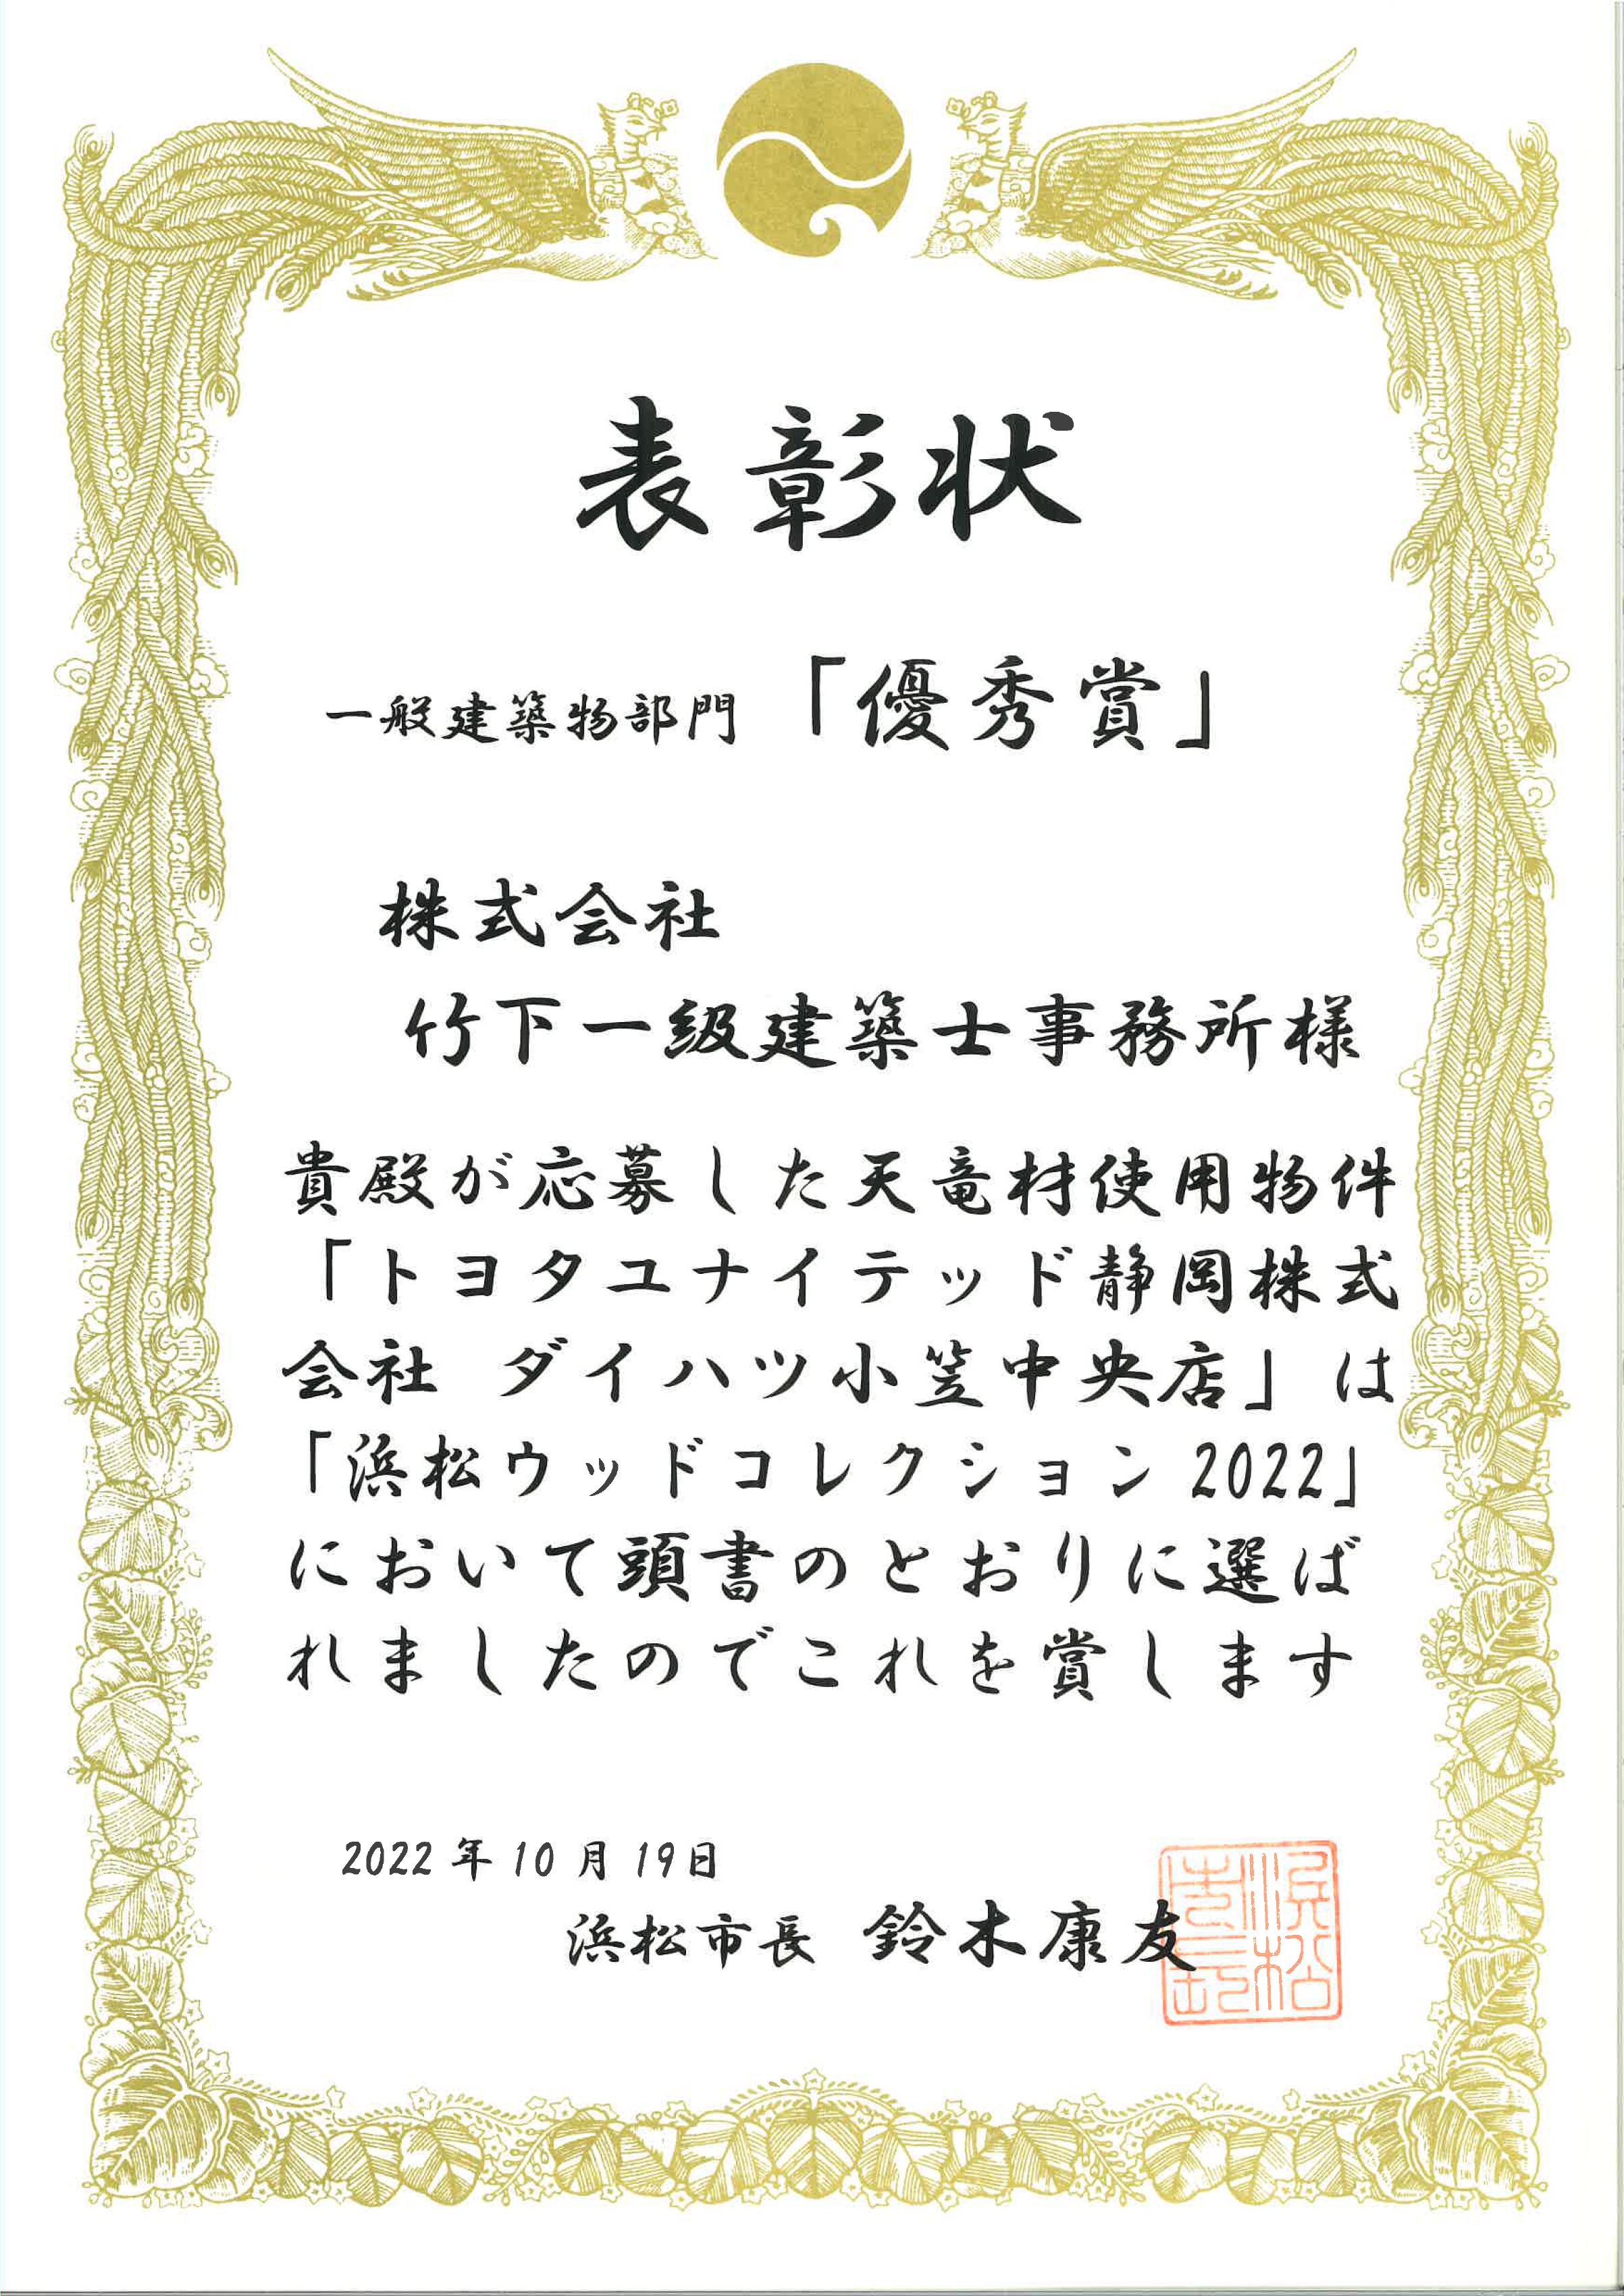 表彰状
一般建築物部門「優秀賞」
株式会社
竹下一級建築士事務所様
貴殿が応募した天竜材使用物件
「トヨタユナイテッド静岡株式
会社 ダイハツ小笠中央店」は
「浜松ウッドコレクション2022」
において頭書のとおりに選ば
れましたのでこれを賞します
2022年10月19日
浜松市長 鈴木康友
浜松
市長印